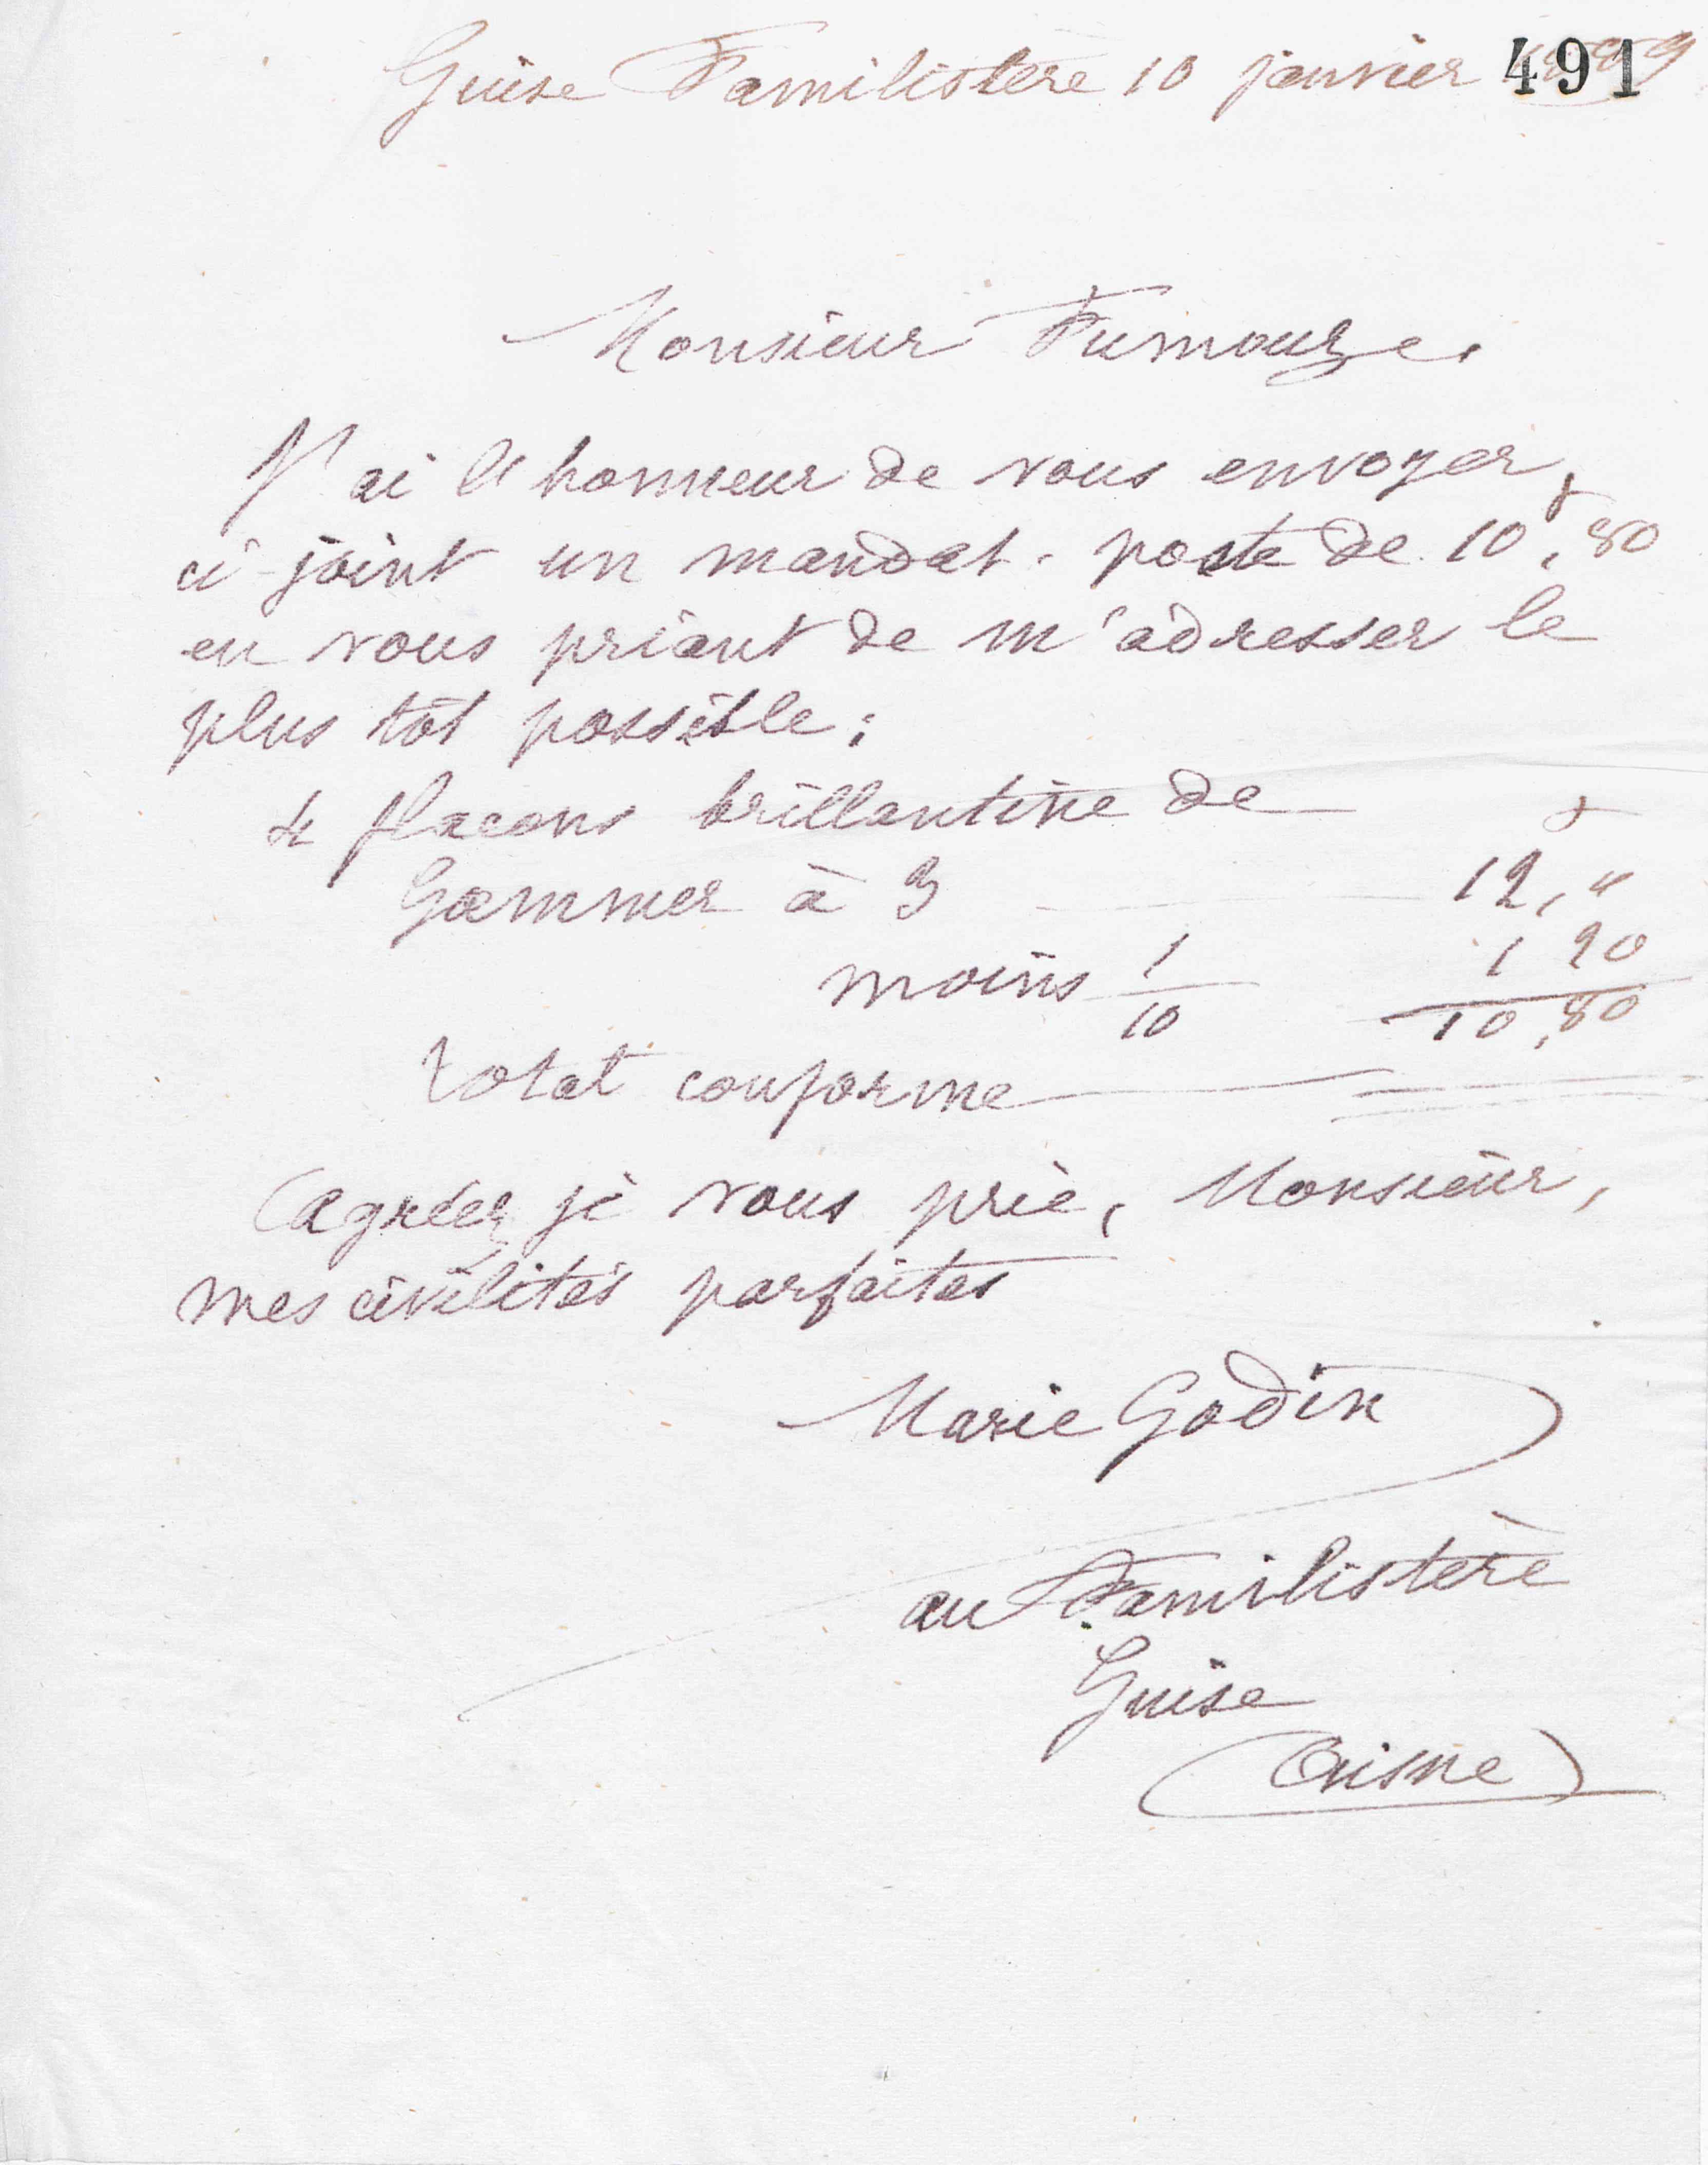 Guise Familistère 10 janvier 491
Monsieur Fumouze.
J'ai l'honneur de vous envoyer,
ci-joint un mandat-poste de 10f,80
en vous priant de m'adresser le
plus tôt possible:
4 flacons brillantine de
Gammer à 3 12," f
moins 1/10 1 20
10,80
total conforme
Agréez je vous prie, Monsieur,
mes civilités parfaites
Marie Godin
au Familistère
Guise
(Aisne)